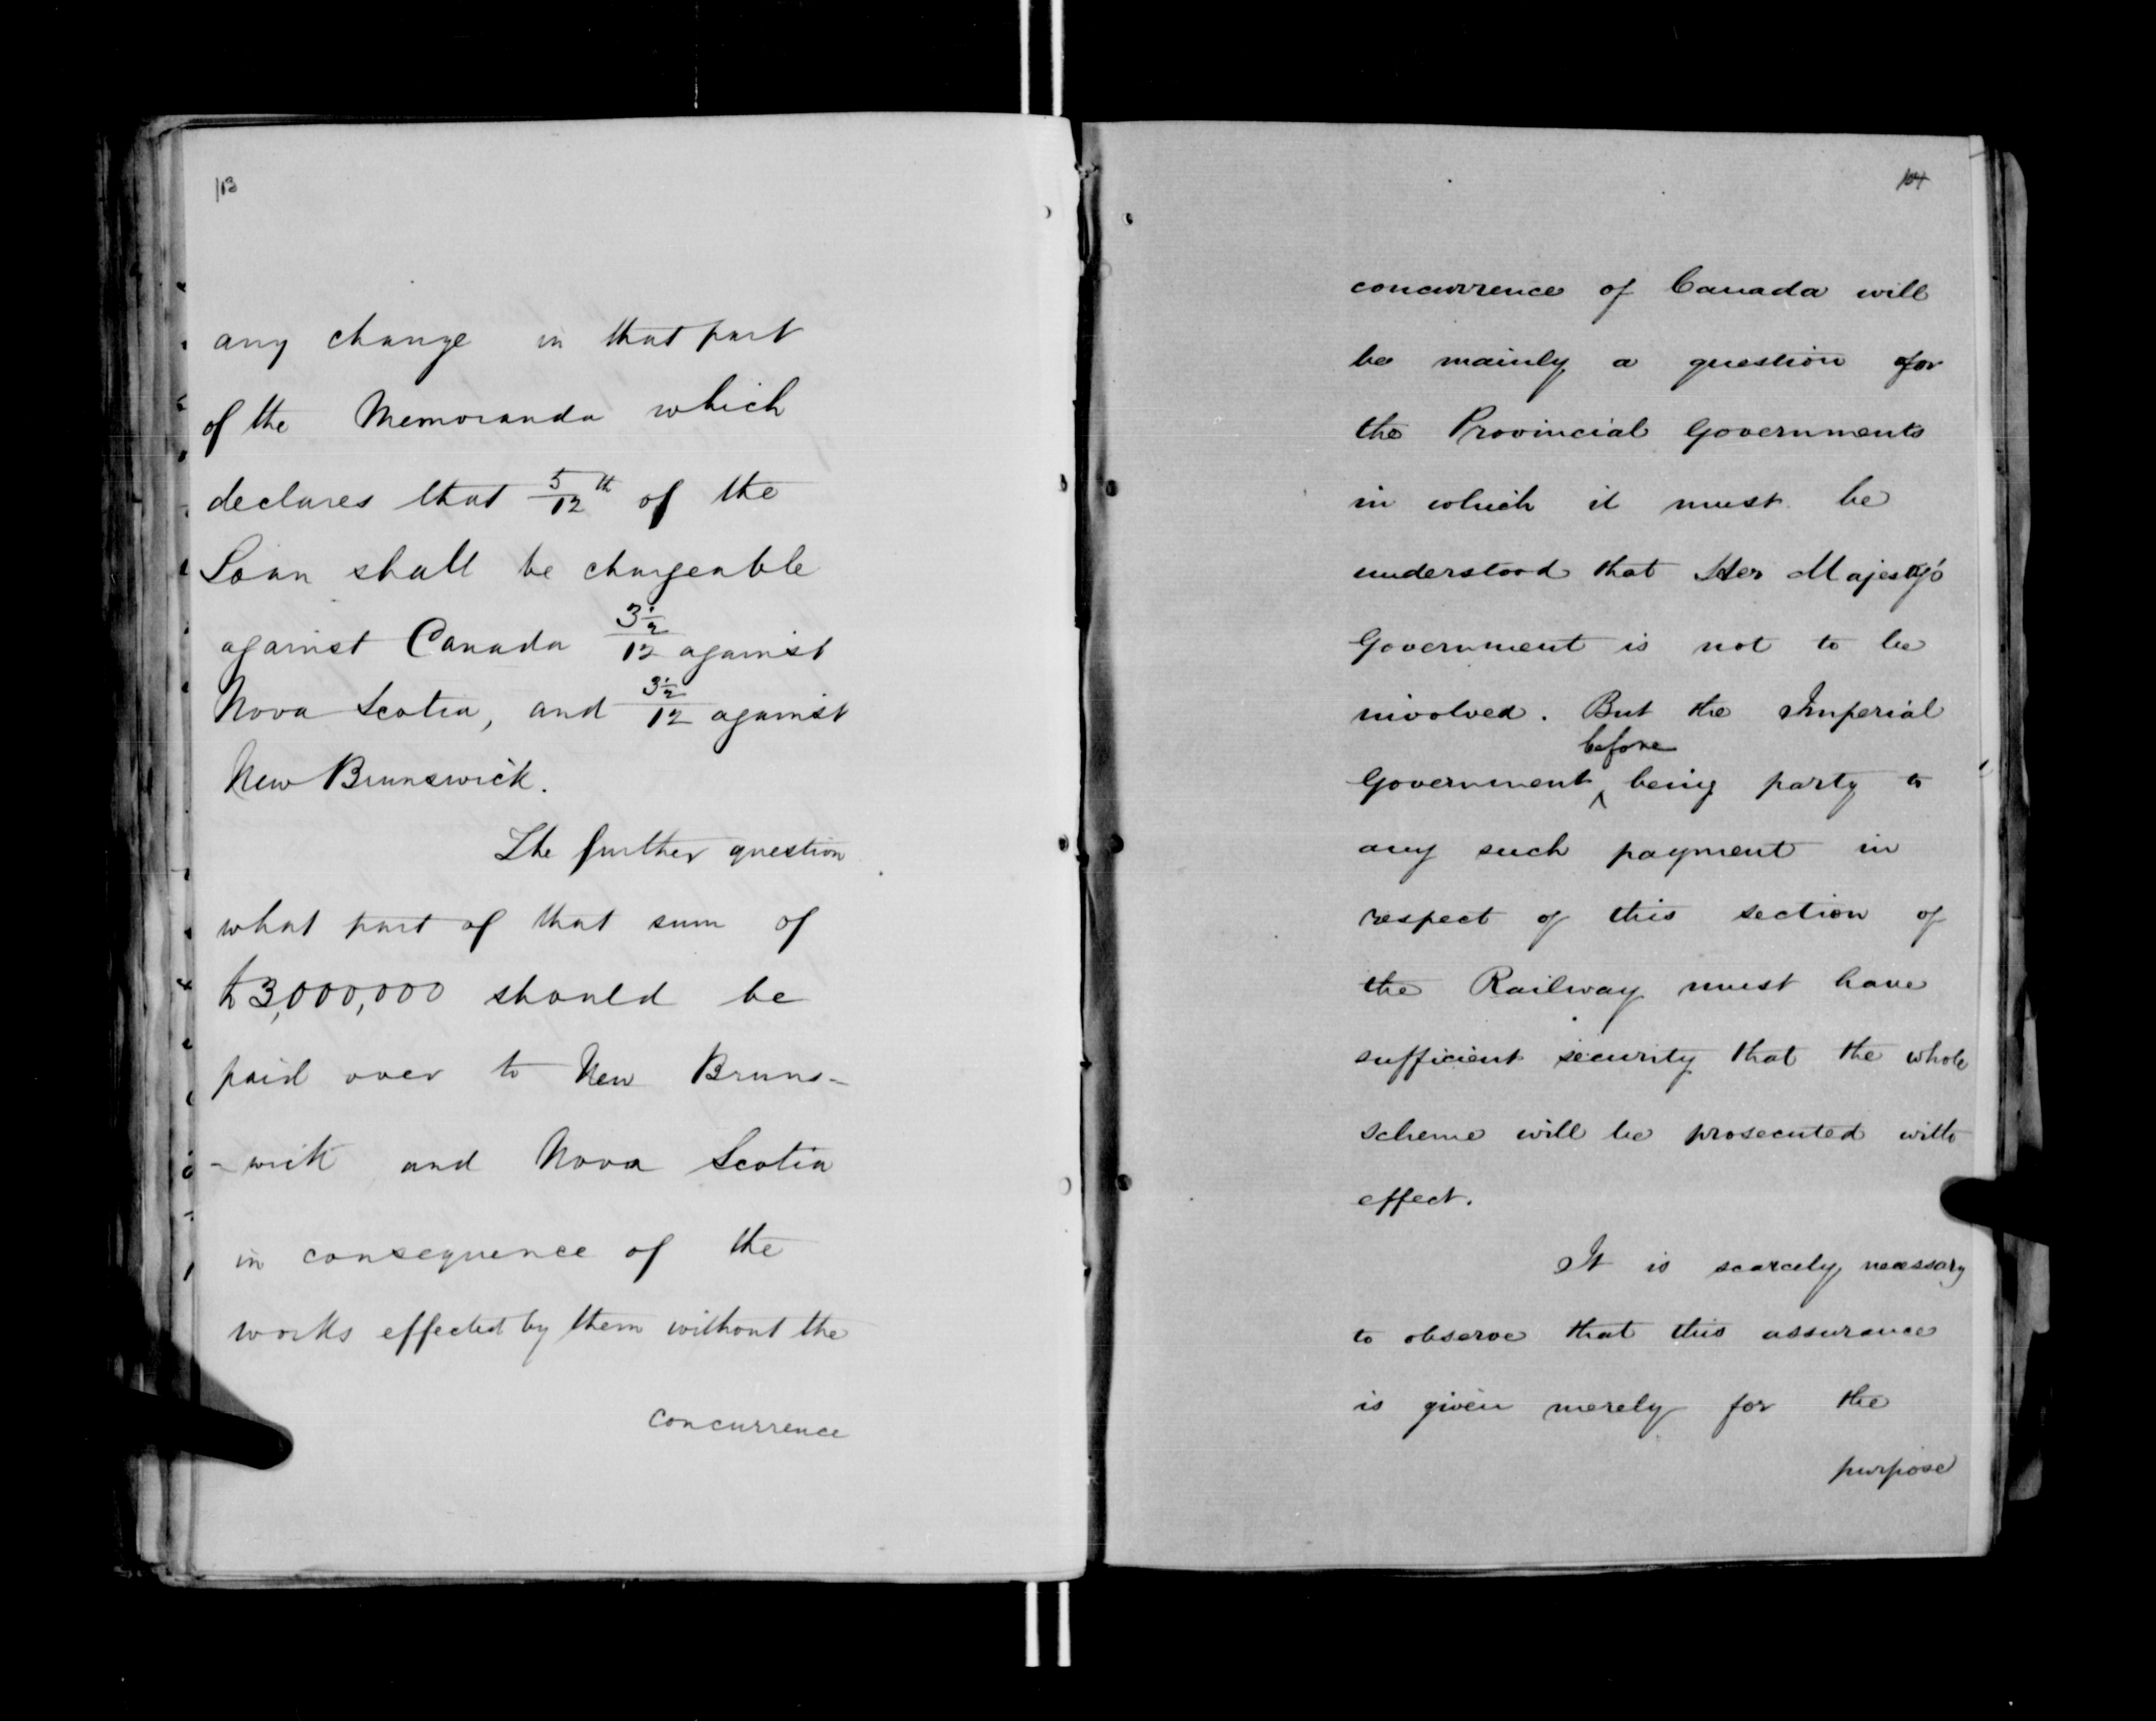 any change in that part
of the Memoranda which
declares that 5/12th of the
Loan shall be chargeable
against Canada 3½/12 against
Nova Scotia, and 3½/12 against
New Brunswick.
The further question
what part of that sum of
£3,000,000 should be
paid over to New Bruns-
-wick and Nova Scotia
in consequence of the
works effected by them without the
concurrence
concurrence of Canada will
be mainly a question for
the Provincial Governments
in which it must be
understood that Her Majesty's
Government is not to be
involved. But the Imperial
before
Government ^ being party to
any such payment in
respect of this section of
the Railway must have
sufficient security that the whole
scheme will be prosecuted with
effect.
It is scarcely necessary
to observe that this assurance
is given merely for the
purpose